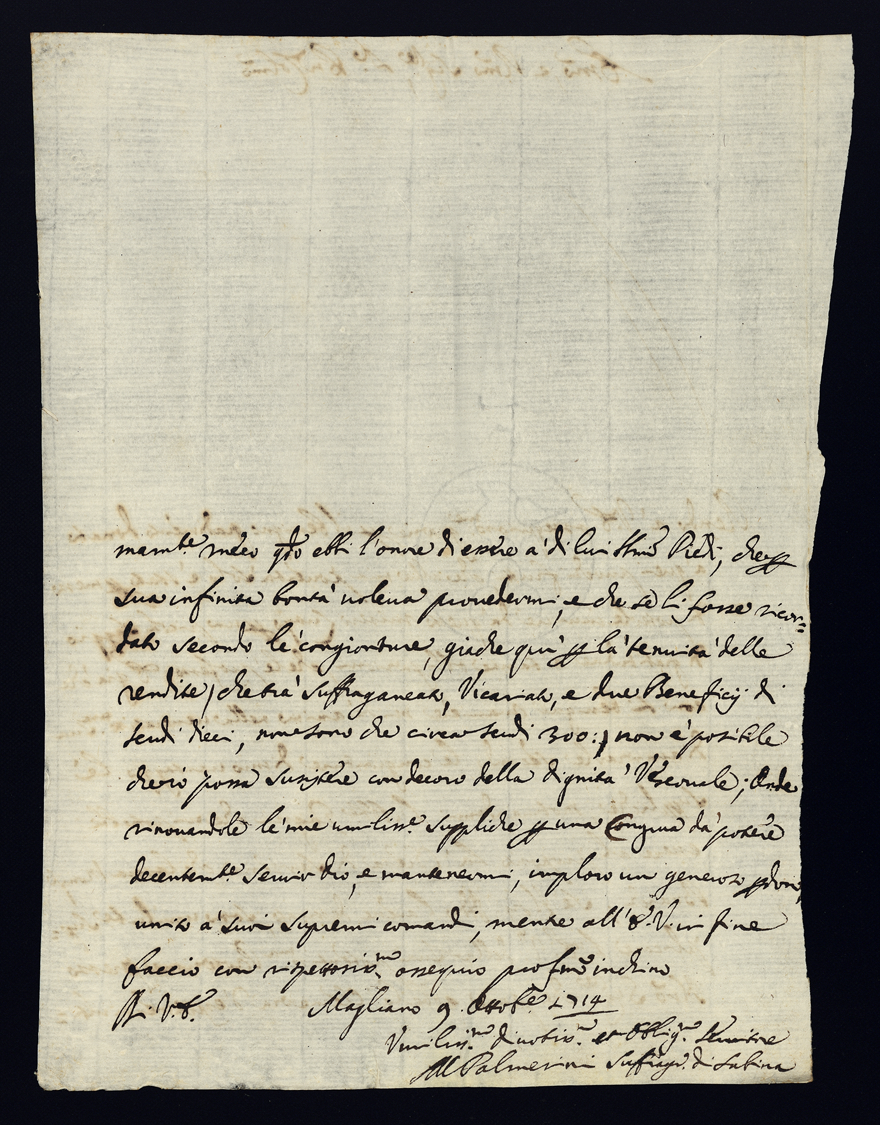 mam.te meco q.do ebbi l'onore di essere à di lui SS.mi Piedi, che p
sua infinita bontà voleva provedermi, e che se li fosse ricor=
dato secondo le congionture, giache quì p la tenuità delle
rendite, che trà Suffraganeato, Vicariato, e due Beneficij di
scudi dieci, non sono che circa scudi 300:, non è posibile
che io possa susistere con decoro della dignità Vescovale; Onde
rinovandole le mie umiliss.e suppliche p una Congrua da potere
decentem.te servir Dio, e mantenermi, imploro un generoso pdono,
unito à suoi supremi comandi, mentre all' V. in fine
faccio con rispettosis.mo ossequio prof.mo inchino
Magliano 9. Ottob.e 1714
Umiliss.mo Divotis.mo et Oblig.mo Servitore
Palmerini Suffrag.o di Sabina